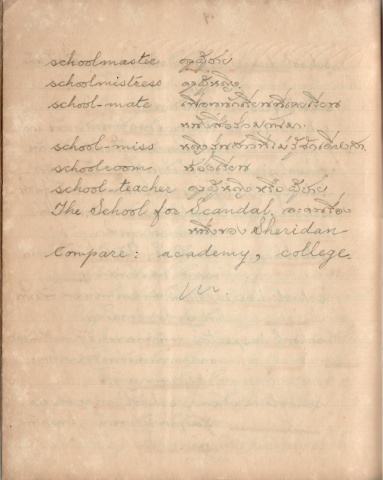 schoolmaster ครูผู้ชาย
schoolmistress ครูผู้หญิง
school-mate เพื่อนนักเรียนที่เคยเรียน
หนังสือร่วมกันมา.
school-miss หญิงรุ่นสาวที่ไม่รู้จักเดียงสา
schoolroom ห้องเรียน
school-teacher ครูผู้หญิงหรือผู้ชาย
The School for Scandal. ละคอนเรื่อง
หนึ่งของ Sheridan
Compare: academy, college.